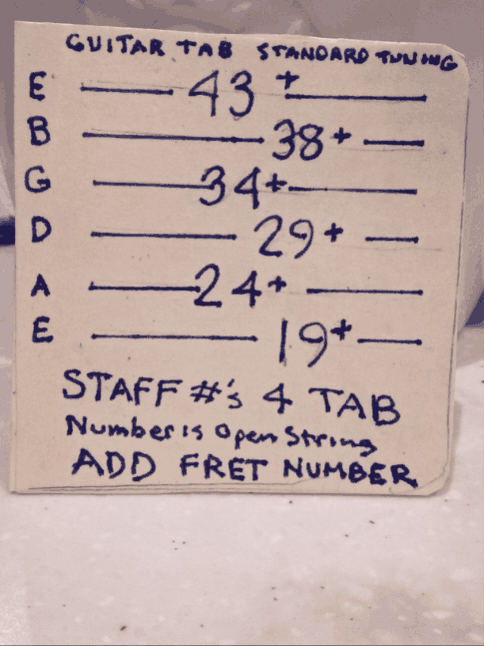 GUITAR TAB STANDARD TUNING
E 43+
B 38+
G 34+
D 29+
A 24+
E 19+
STAFF #'s 4 TAB
Number is Open String
ADD FRET NUMBER